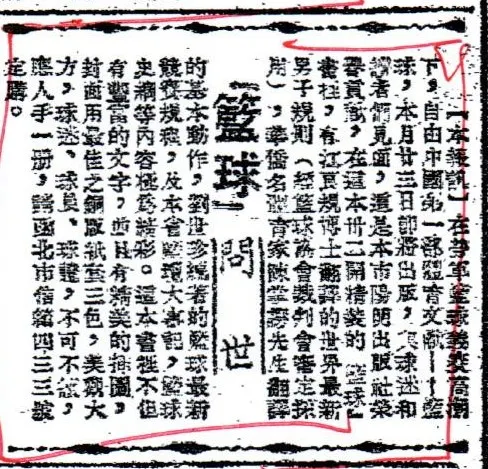 【本報訊】在勞軍籃球義賽高潮
下，自由中國第一部體育文獻——籃
球，本月廿三日即將出版，與球迷和
讀者們見面，這是本市陽明出版社榮
譽貢獻，在這本卅二開精裝的「籃球」
書裡，有江良規博士翻譯的世界最新
男子規則（經籃球協會裁判會審定採
用），華僑名體育家陳掌諤先生翻譯
「籃球」問世
的基本動作，劉世珍編著的籃球最新
競賽規程，及本省籃壇大事記，籃球
史禍等內容極為精彩。這本書性不但
有豐富的文字，而且有精美的插圖，
封面用最佳之銅版紙套三色，美觀大
方，球迷、球員、球證，不可不讀，
應人手一册，請函北市信箱四三三號
定購。